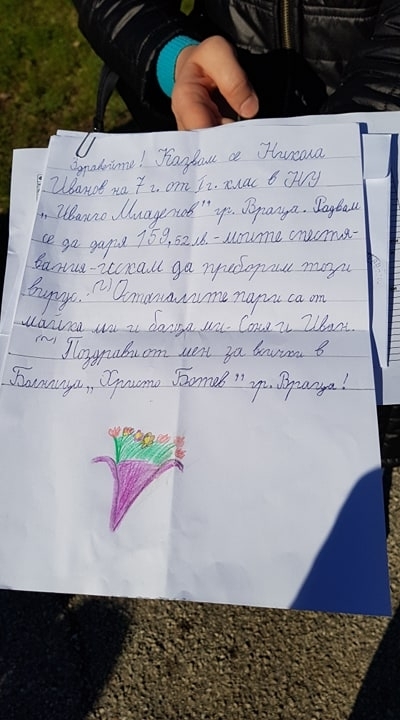 Здравейте! Казвам се Никола
Иванов на 7 г. от I г. клас в НУ
„Иванчо Младенов” гр. Враца. Радвам
се да даря 159,52лв. - моите спестя-
вания - искам да преборим този
вирус. Останалите пари са от
майка ми и баща ми - Соня и Иван.
Поздрави от мен за всички в
Болница „Христо Ботев” гр. Враца!